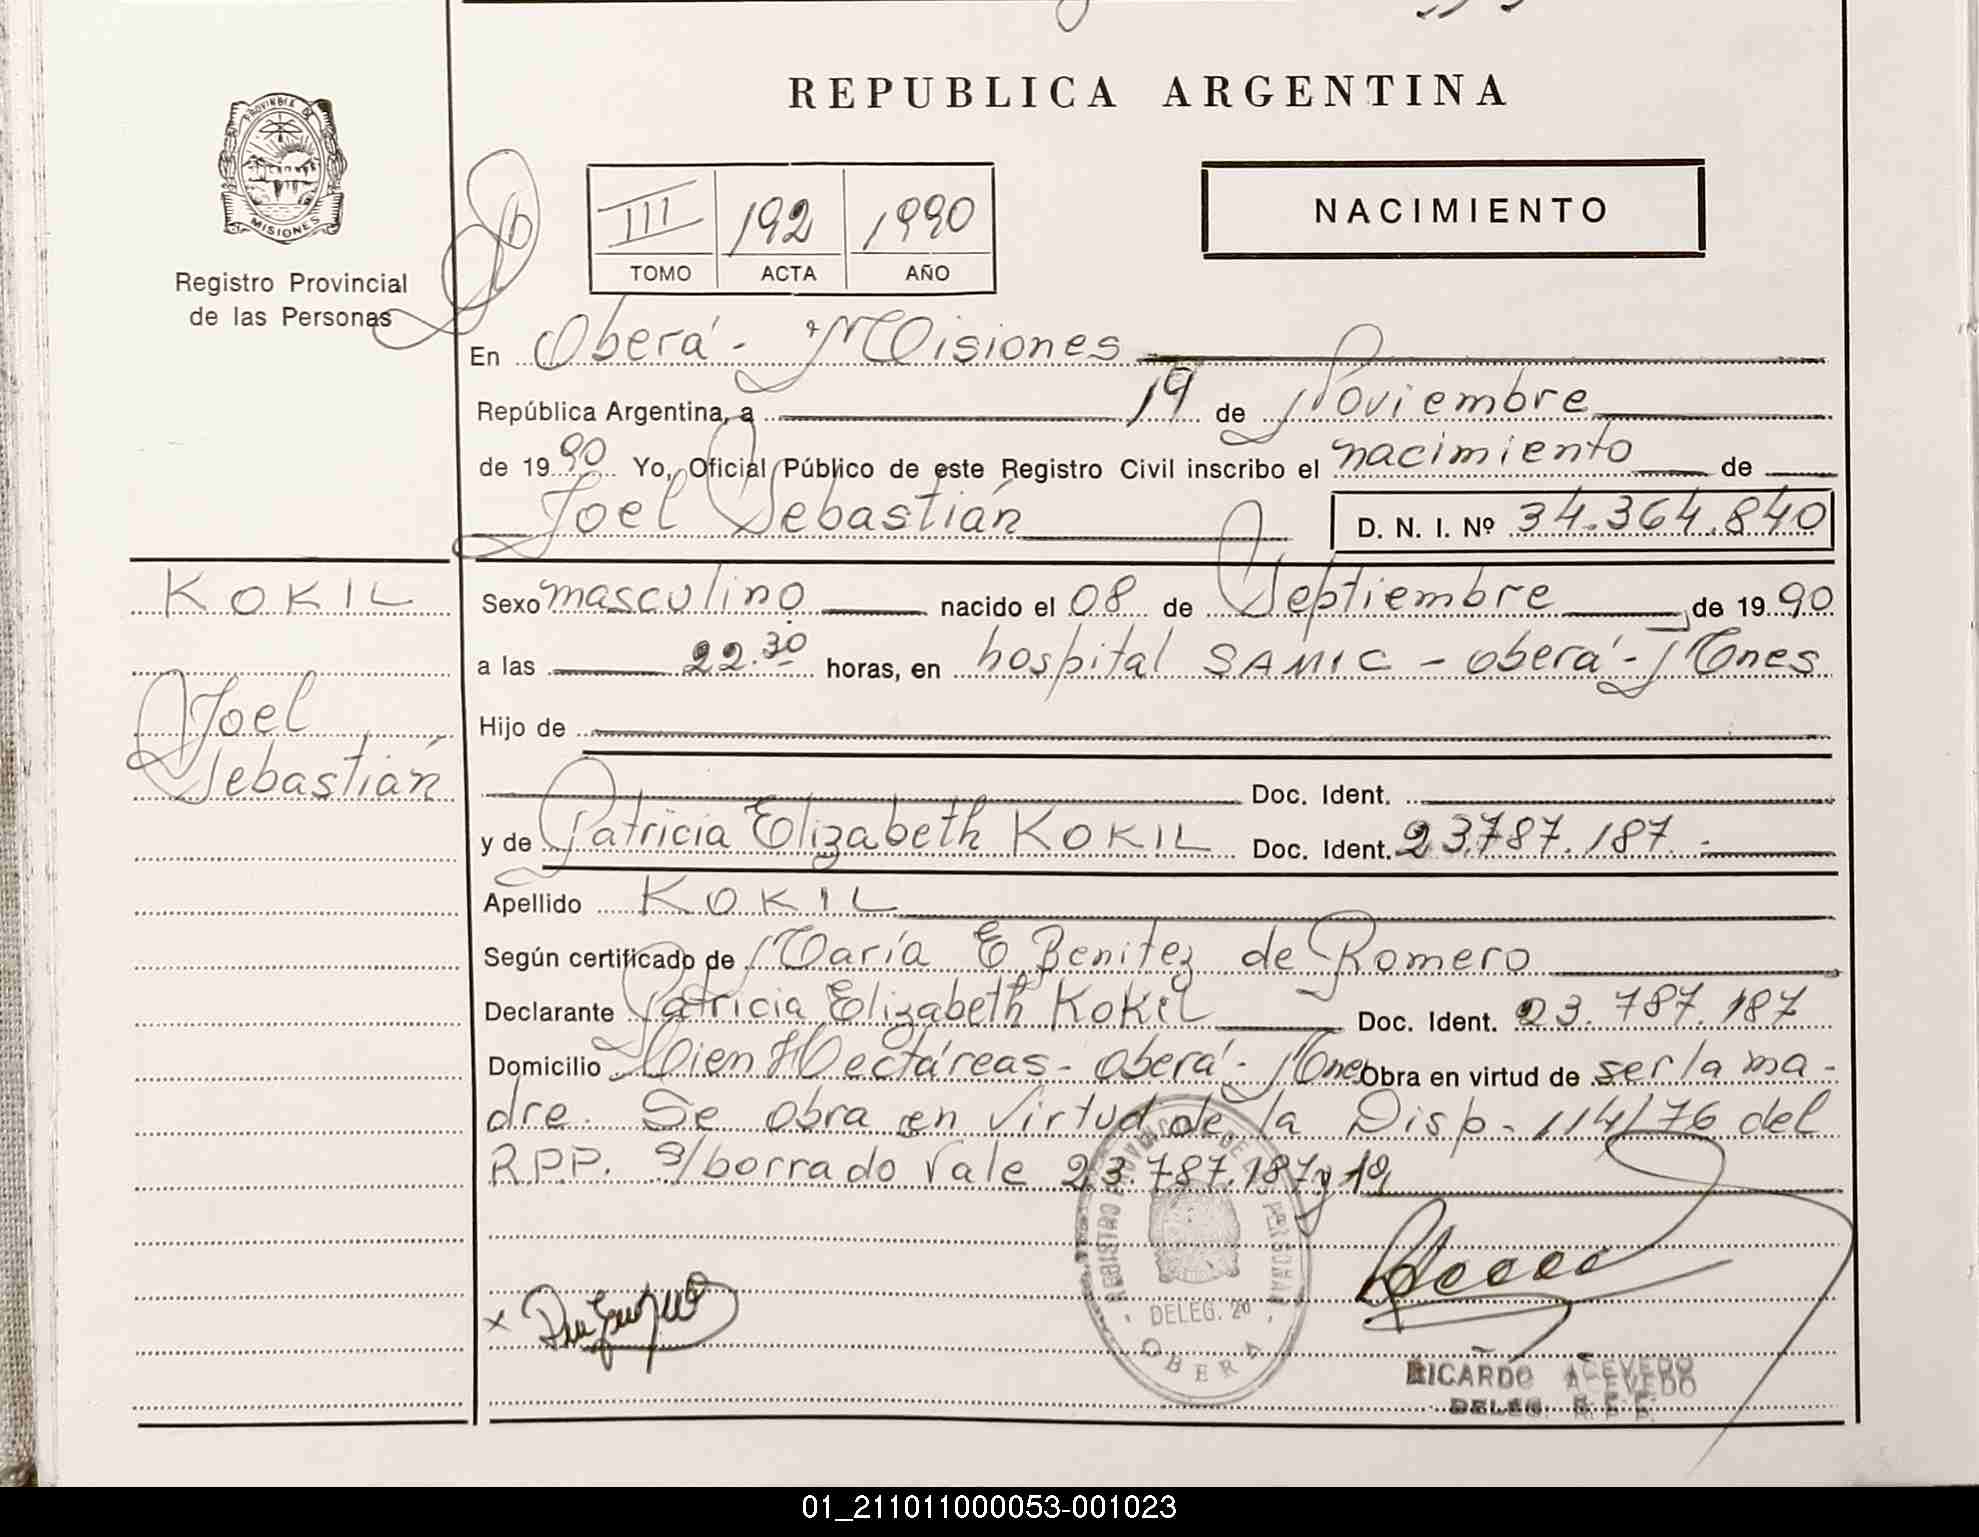 REPUBLICA ARGENTINA
PROVINCIA DE
MISIONES
Registro Provincial
de las Personas
III 192 1990
TOMO ACTA AÑO
NACIMIENTO
En Oberá - Misiones
República Argentina, a 19 de Noviembre
de 1990 Yo, Oficial Público de este Registro Civil inscribo el nacimiento de
Joel Sebastián D. N. I. Nº 34.364.840
KOKIL
Joel
Sebastián
Sexo masculino nacido el 08 de Septiembre de 1990
a las 22.30 horas, en hospital SAMIC - Oberá - Mnes
Hijo de
Doc. Ident.
y de Patricia Elizabeth KOKIL Doc. Ident. 23.787.187.-
Apellido KOKIL
Según certificado de María E Benitez de Romero
Declarante Patricia Elizabeth Kokil Doc. Ident. 23.787.187
Domicilio Cien Hectáreas - Oberá - Mnes Obra en virtud de ser la ma-
dre. Se obra en virtud de la Disp. 114/76 del
R.P.P. S/borrado vale 23.787.187 y 19
DELEG. 20
OBERA
RICARDO ACEVEDO
DELEG. R. P. P.
01_211011000053-001023